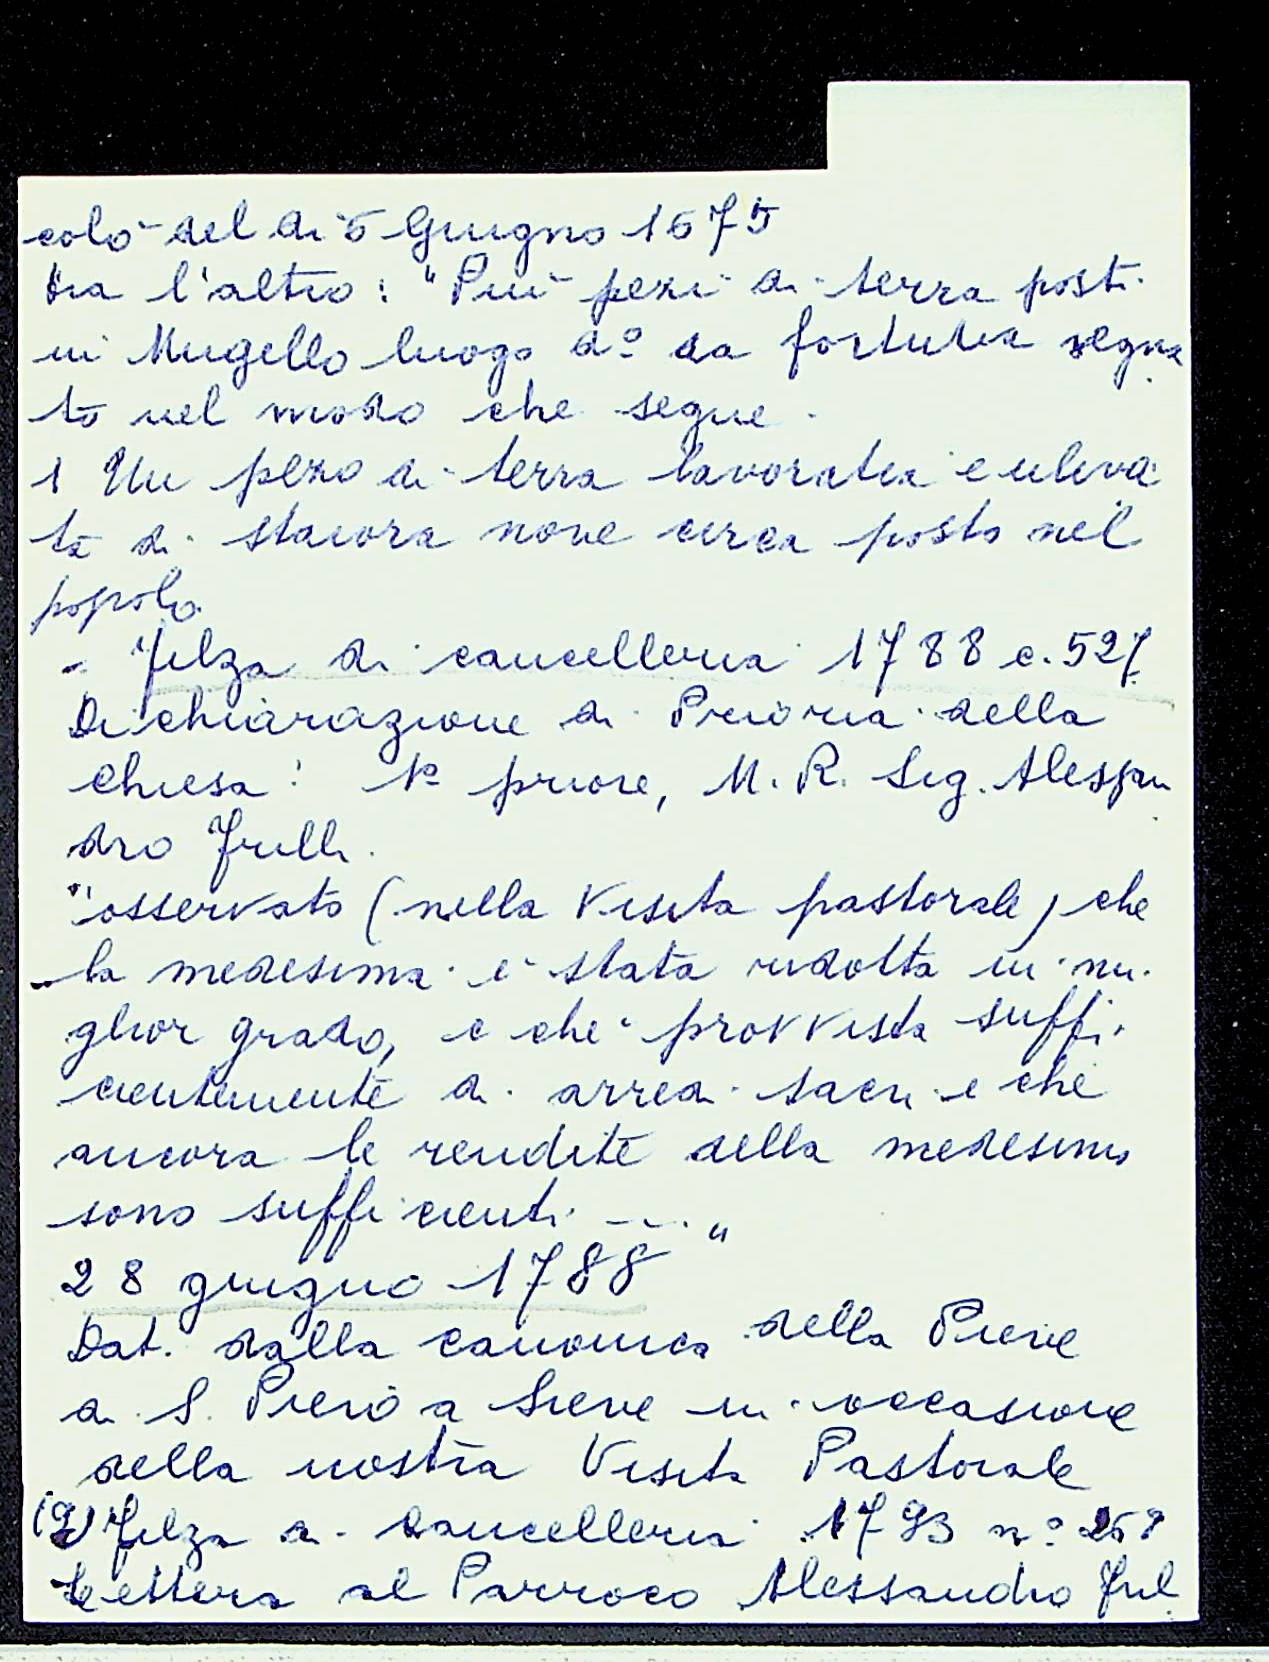 colò del di 5 Giugno 1675
tra l'altro: "Più pezzi di terra posti
in Mugello luogo d.o da fortuna segna
to nel modo che segue.
1 Un pezzo di terra lavoratia e uliva
ta di staiora nove circa posto nel
popolo
- Filza di cancelleria 1788 c. 527
Dichiarazione di Prioria della
Chiesa: 1° priore, M. R. Sig. Alessan
dro Frulli.
"osservato (nella Visita pastorale) che
la medesima è stata ridotta in mi
glior grado, e che provvista suffi
cientemente di arredi sacri e che
ancora le rendite della medesima
sono sufficienti ... "
28 giugno 1788
Dat. dalla canonica della Pieve
di S. Piero a Sieve in occasione
della nostra Visita Pastorale
(9) Filza di Cancelleria 1793 n.°
Lettera al Parroco Alessandro Frul